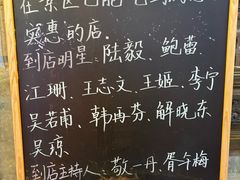 在景区
实惠的店.
到店明星:陆毅、鲍蕾、
江珊、王志文、王姬、李宁
吴若甫、韩再芬、解晓东
吴琼
到店主持人:敬一丹、胥午梅